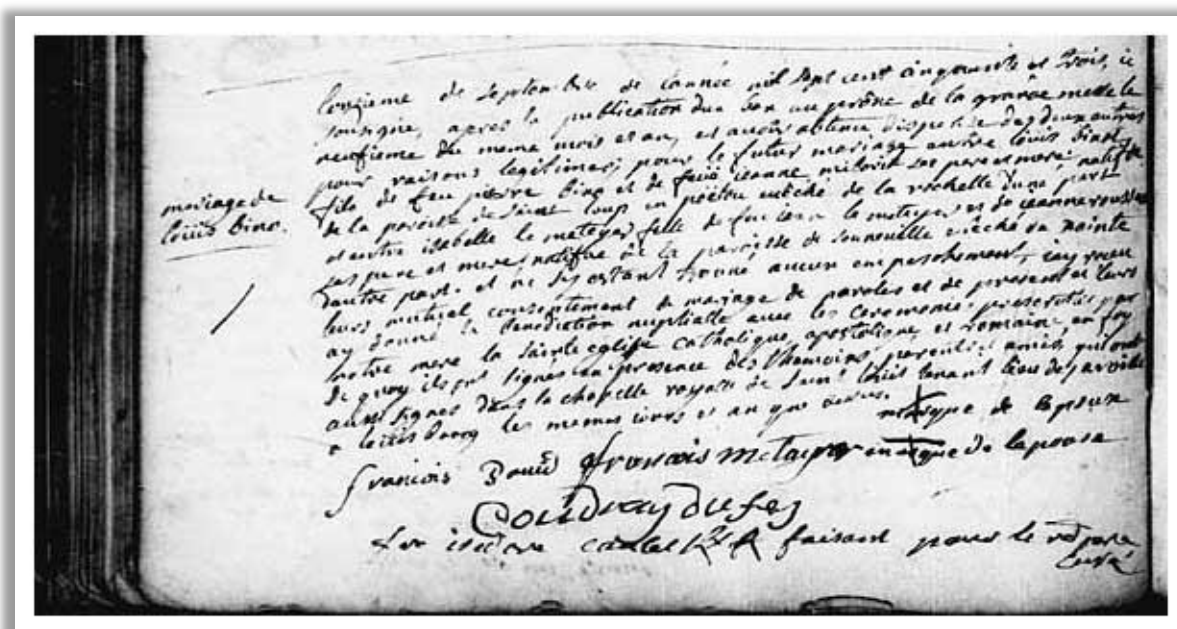 mariage de
loüis bino.
lonzieme de septembre de lannée mil sept cent cinquante et trois, ie
sousigné, apres la publication dun ban au prône de la grande messe le
neufieme du meme mois et an, et avoir obtenu dispense des deux autres
pour raisons legitimes, pour le futur mariage entre loüis binot
fils de feu pierre bino et de feüe ieanne ses pere et mere, natif de
de la paroisse de saint loup en poitou evêché de la rochelle dune part
et entre isabelle le metayer fille de feu iean le metayer et de ieanne
ses pere et mere, natifve de la paroisse de evêché de
dautre part. et ne sy estant trouvé aucun empeschement, iay receu
leurs mutuel consentement de mariage de paroles et de present et leurs
ay donné la benediction nuptialle avec les ceremonies prescrittes par
notre mere la sainte eglise catholique, apostolique, et romaine, en foy
de quoy ils ont signes en presence des thémoins, parents, amis, qui ont
aussi signes dans la chapelle royale de saint loüis tenant lieu de paroisse
a loüisbourg les memes iours et an que dessus.
marque de lepoux
francois francois metayer marque de lepouse
Coudray Dufey
isidore faisant pour le
curé